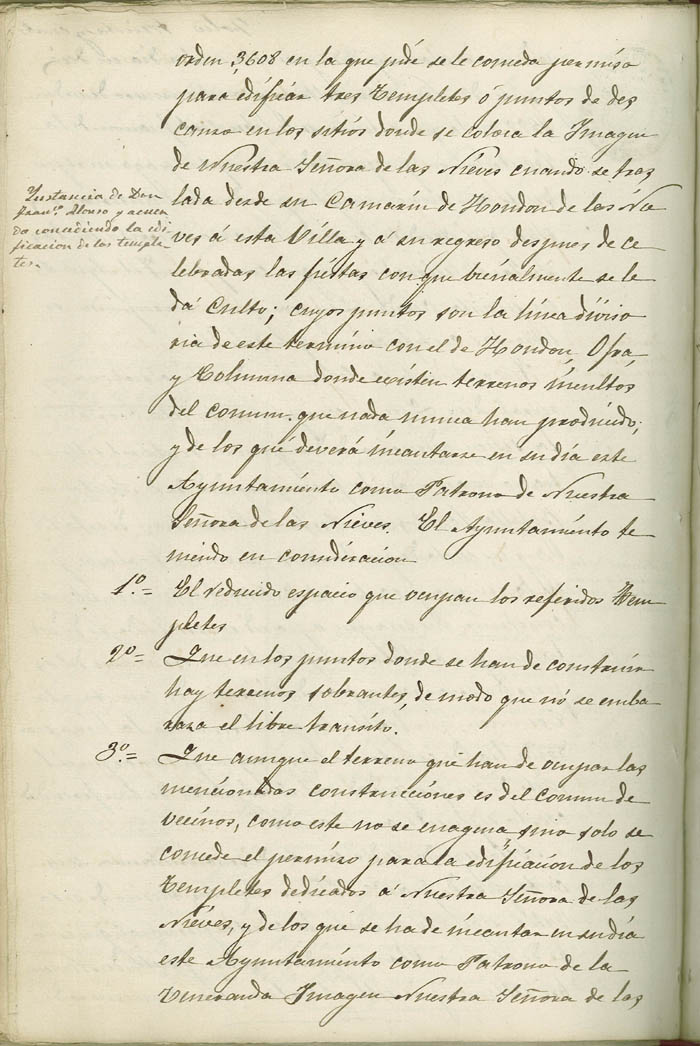 orden 3608 en la que pide se le conceda permiso
para edificar tres templetes ó puntos de des
canso en los sitios donde se coloca la Imagen
de Nuestra Señora de las Nieves cuando se tras
lada desde su Camarin de Hondon de las Nie
ves á esta Villa y á su regreso despues de ce
lebradas las fiestas con que bienalmente se le
dá Culto; cuyos puntos son la línea diviso
ria de este término con el de Hondon, Ofra,
y Columna donde existen terrenos incultos
del comun que nada nunca han producido;
y de los que deverá incautarse en su dia este
Ayuntamiento como Patrono de Nuestra
Señora de las Nieves. El Ayuntamiento te
niendo en consideracion
Instancia de Don
Franco. Alonso y acuer
do concediendo la edi
ficacion de los temple
tes.
1º.= El reducido espacio que ocupan los referidos Tem
pletes
2º= Que en los puntos donde se han de construir
hay terrenos sobrantes, de modo que no se emba
raza el libre transito.
3º.= Que aunque el terreno que han de ocupar las
mencionadas construcciones es del comun de
vecinos, como este no se enagena, sino solo se
concede el permiso para la edificacion de los
templetes dedicados á Nuestra Señora de las
Nieves, y de los que se ha de incautar en su dia
este Ayuntamiento como Patrono de la
Veneranda Imagen Nuestra Señora de las